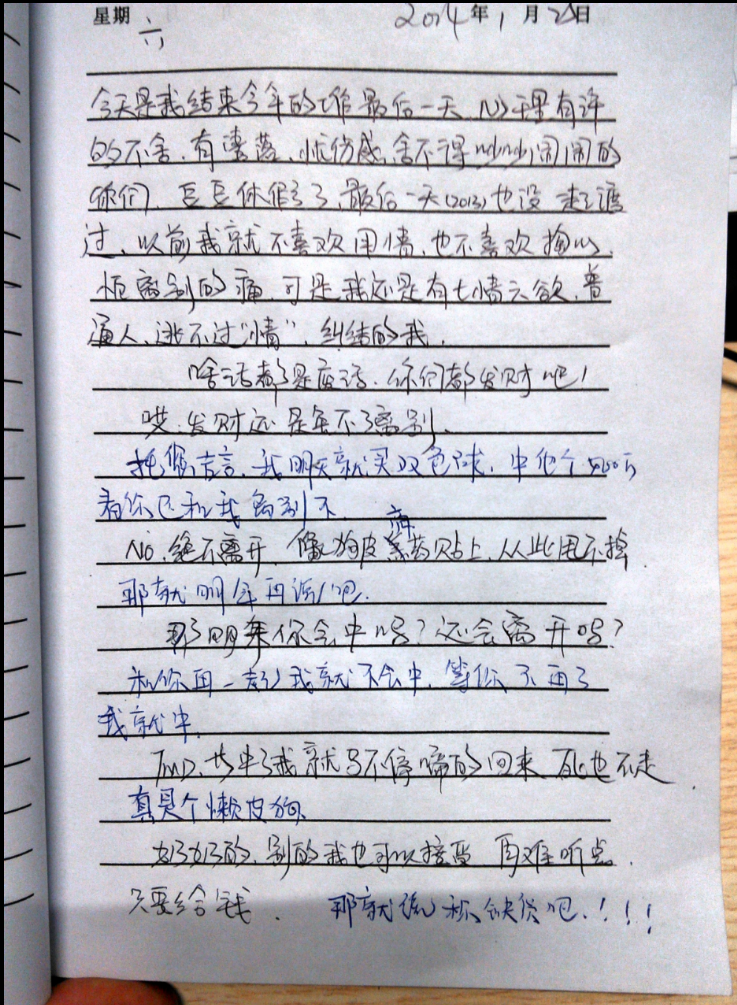 星期六 2014年1月25日
今天是我结束今年的工作最后一天,心里有许
的不舍,有失落、忧伤感,舍不得吵吵闹闹的
你们,豆豆休假了,最后一天(2013)也没一起渡
过、以前我就不喜欢用情,也不喜欢
怕离别的痛,可是我还是有七情六欲,普
通人、逃不过“情”,纠结的我.
啥话都是废话,你们都发财吧!
哎:发财还是免不了离别.
托你吉言,我明天就买双色球,中他个500万
看你还和我离别不
No,绝不离开,像狗皮膏药贴上,从此甩不掉.
那就明年再说吧.
那明年你会中吗?还会离开吗?
和你再一起我就不会中,等你不再了
我就中
TMD、你中了我就马不停啼的回来,死也不走
真是个懒皮狗
好好的,别的我也可以接受,再难听点.
只要给钱. 那就说你缺货吧.!!!